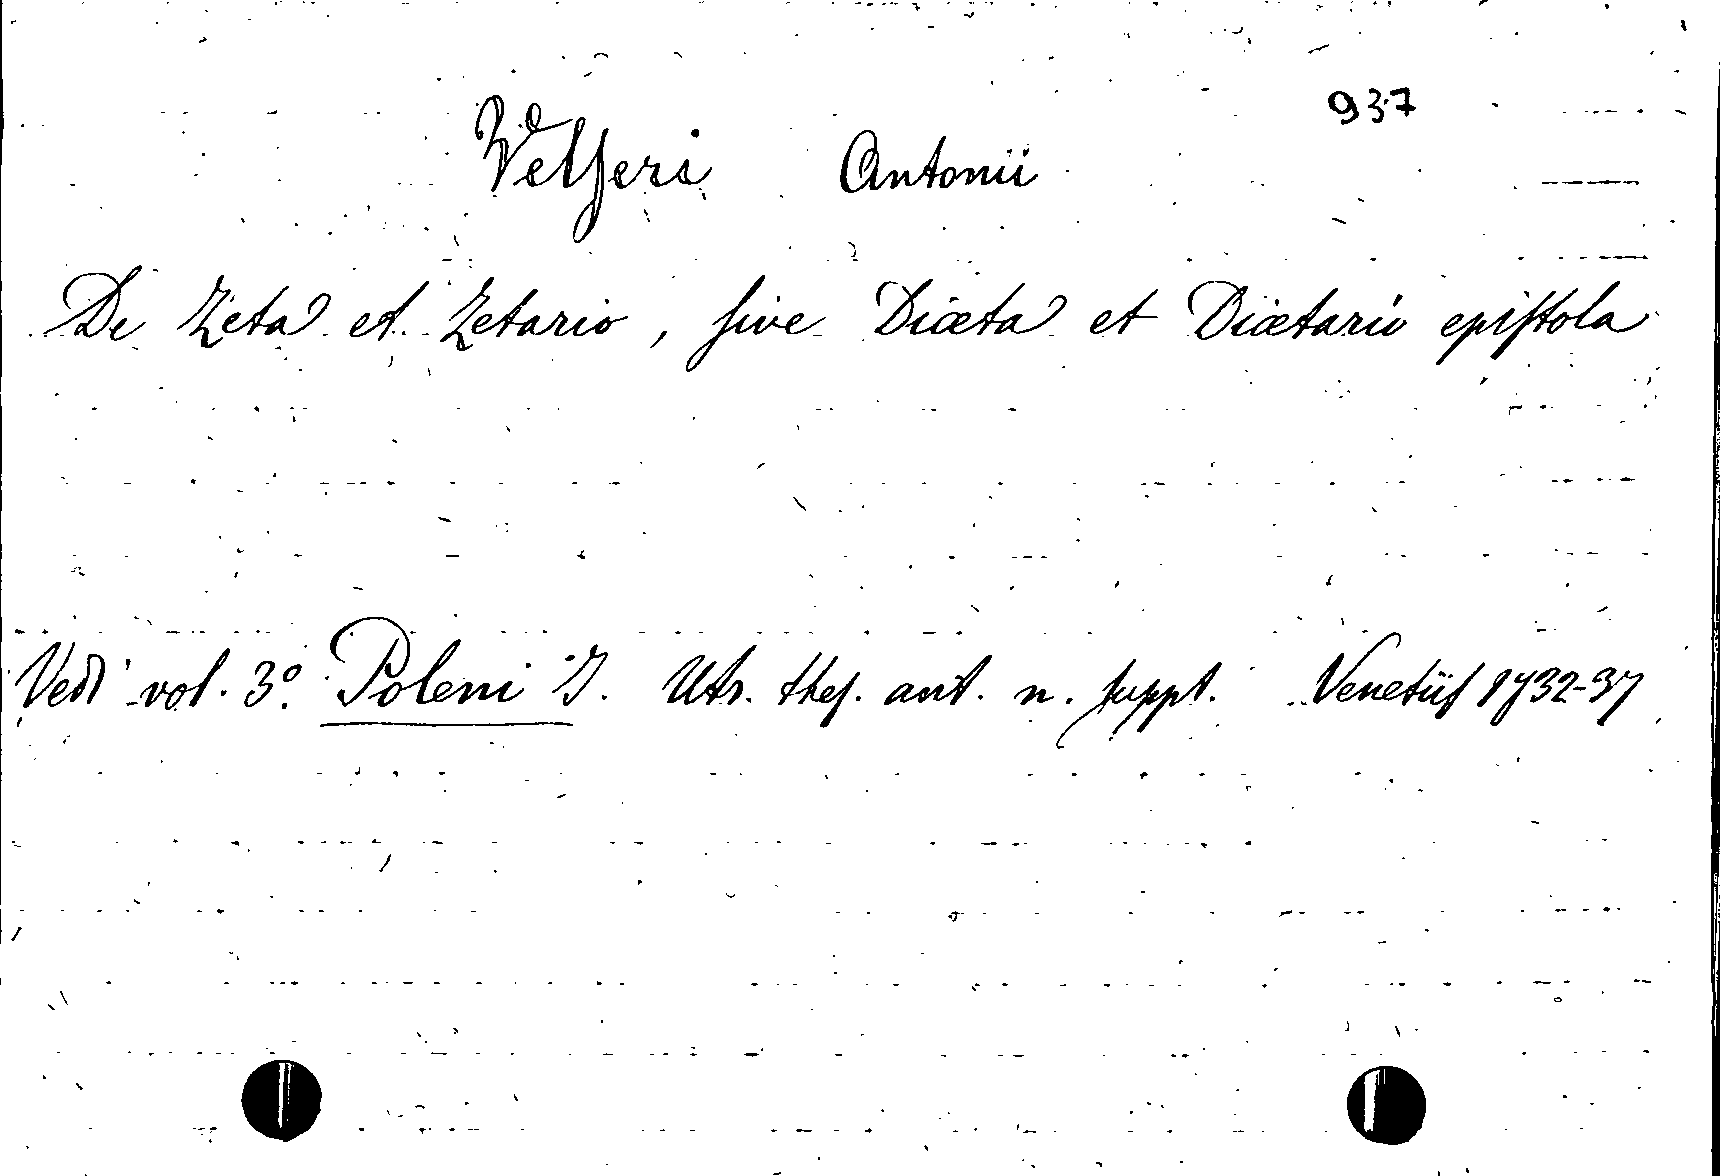 937
Velſeri Antonii
De Zeta et Zetario, ſive Diæta et Diætario epiſtola
Vedi vol. 3º. Poleni I. Utr. theſ. ant. n. ſuppt. Venetiiſ 1732-37